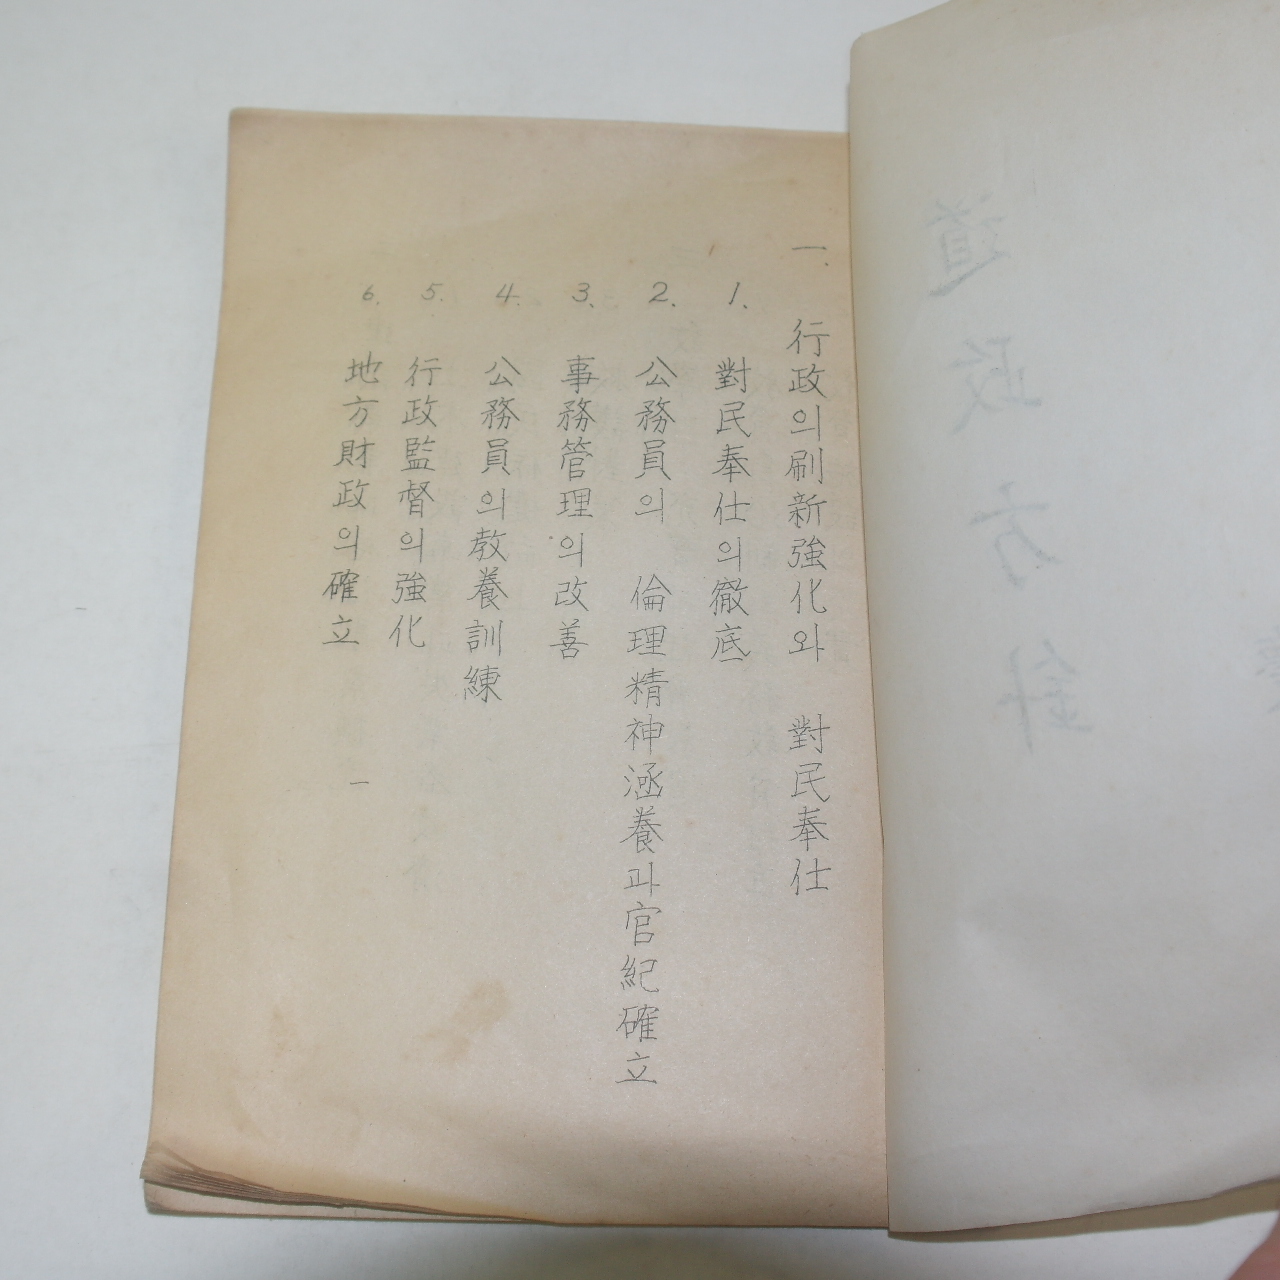 道政方針
一. 行政의刷新強化와 對民奉仕
1. 對民奉仕의徹底
2. 公務員의 倫理精神涵養과官紀確立
3. 事務管理의改善
4. 公務員의敎養訓練
5. 行政監督의強化
6. 地方財政의確立
一